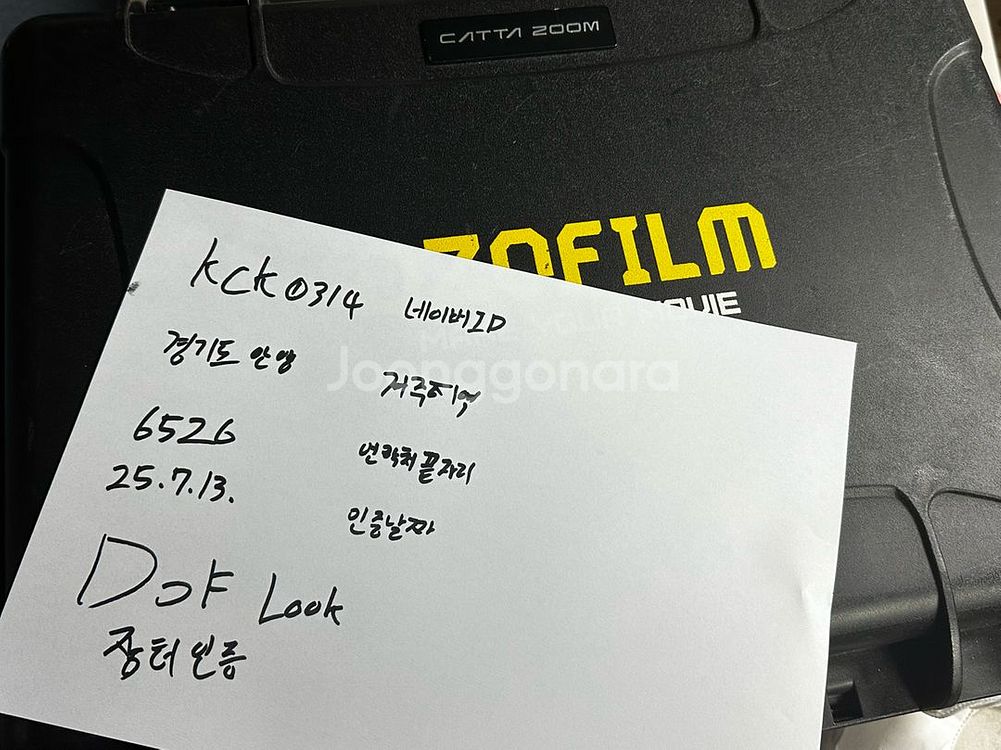 CATTA ZOOM
ZOFILM
OVIE
KCK0314 네이버ID
경기도 안양 거주지역
6526 연락처끝자리
25.7.13. 인증날짜
DOF Look
장터인증
Joonggonara